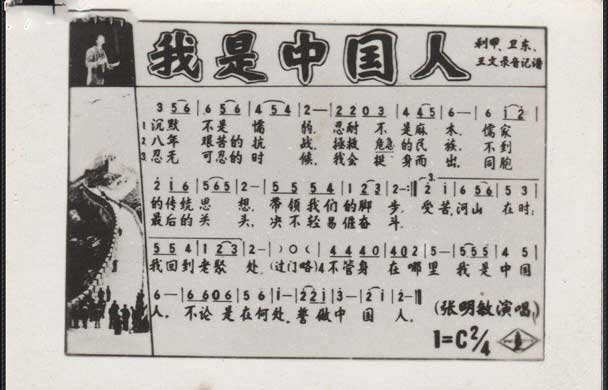 我是中国人
利甲、卫东、
王文录音记谱
3 5 6 | 6 5 6 | 4 5 4 | 2 — | 2 2 0 3 | 4 4 5 | 6 — | 6 i 2 |
1. 沉默 不是 懦 的, 忍耐 不 是麻 木, 儒家
2. 八年 艰苦的 抗 战, 拯救 危急 的民 族, 不到
3. 忍无 可忍的 时 候, 我会 挺 身而 出, 同胞
的传统 思 想, 带领我们的脚 步。 受苦,河山 在时;
最后的 头 头, 决不轻易 奋 斗。
5 5 4 | 1 2 3 | 2 — | ) 0 ( | 4 4 4 0 | 4 0 2 | 5 — | 5 5 5 | 4 5 |
我回到老 处, (过门略) 4不管身 在哪里 我是中国
6 — | 6 6 0 6 | 5 6 | i — | 2 2 i | 3 — | 2 i | 2 — ‖
人, 不论是在何处,誓做中 国 人。
(张明敏演唱)
1=C 2/4